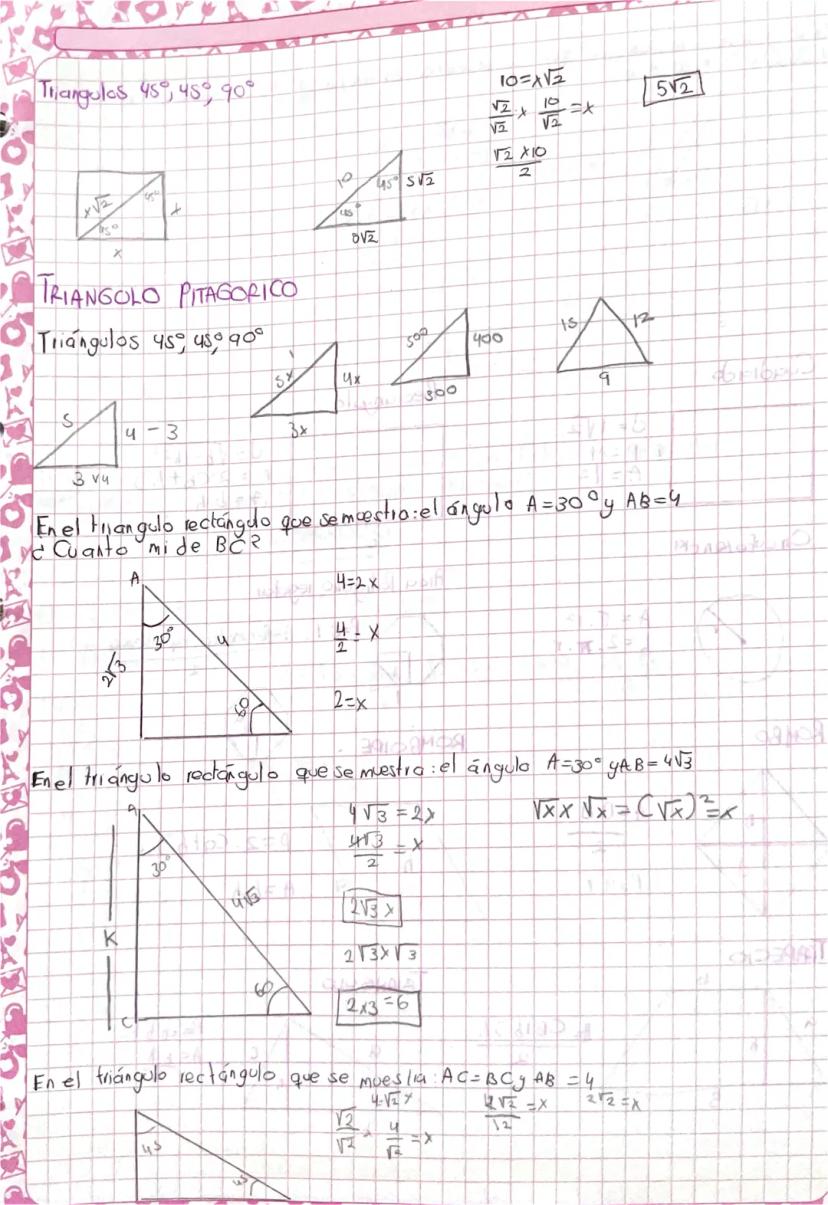 Triangulos 45°, 45°, 90°
10=x√2
√2/√2 x 10/√2 =x
√2 x10/2
5√2
x√2
45°
45°
x
x
10
45°
45°
5√2
TRIANGOLO PITAGORICO
Triángulos 45°, 45°, 90°
5
4 - 3
5x
4x
3x
500
400
300
15
12
9
En el triangulo rectángulo que se muestra: el ángulo A=30° y AB=4
¿ Cuanto mide BC?
A
30°
4
2√3
60
4=2x
4/2 = x
2=x
En el triángulo rectángulo que se muestra: el ángulo A=30° y AB=4√3
30°
4√3
K
60
C
4√3=2x
4√3/2 =x
2√3 x
2√3x√3
2x3=6
√x x √x = (√x)²=x
En el triángulo rectángulo que se muestra: AC=BC y AB =4
45
4√2 x
√2/√2 . 4/√2 =x
2√2=x